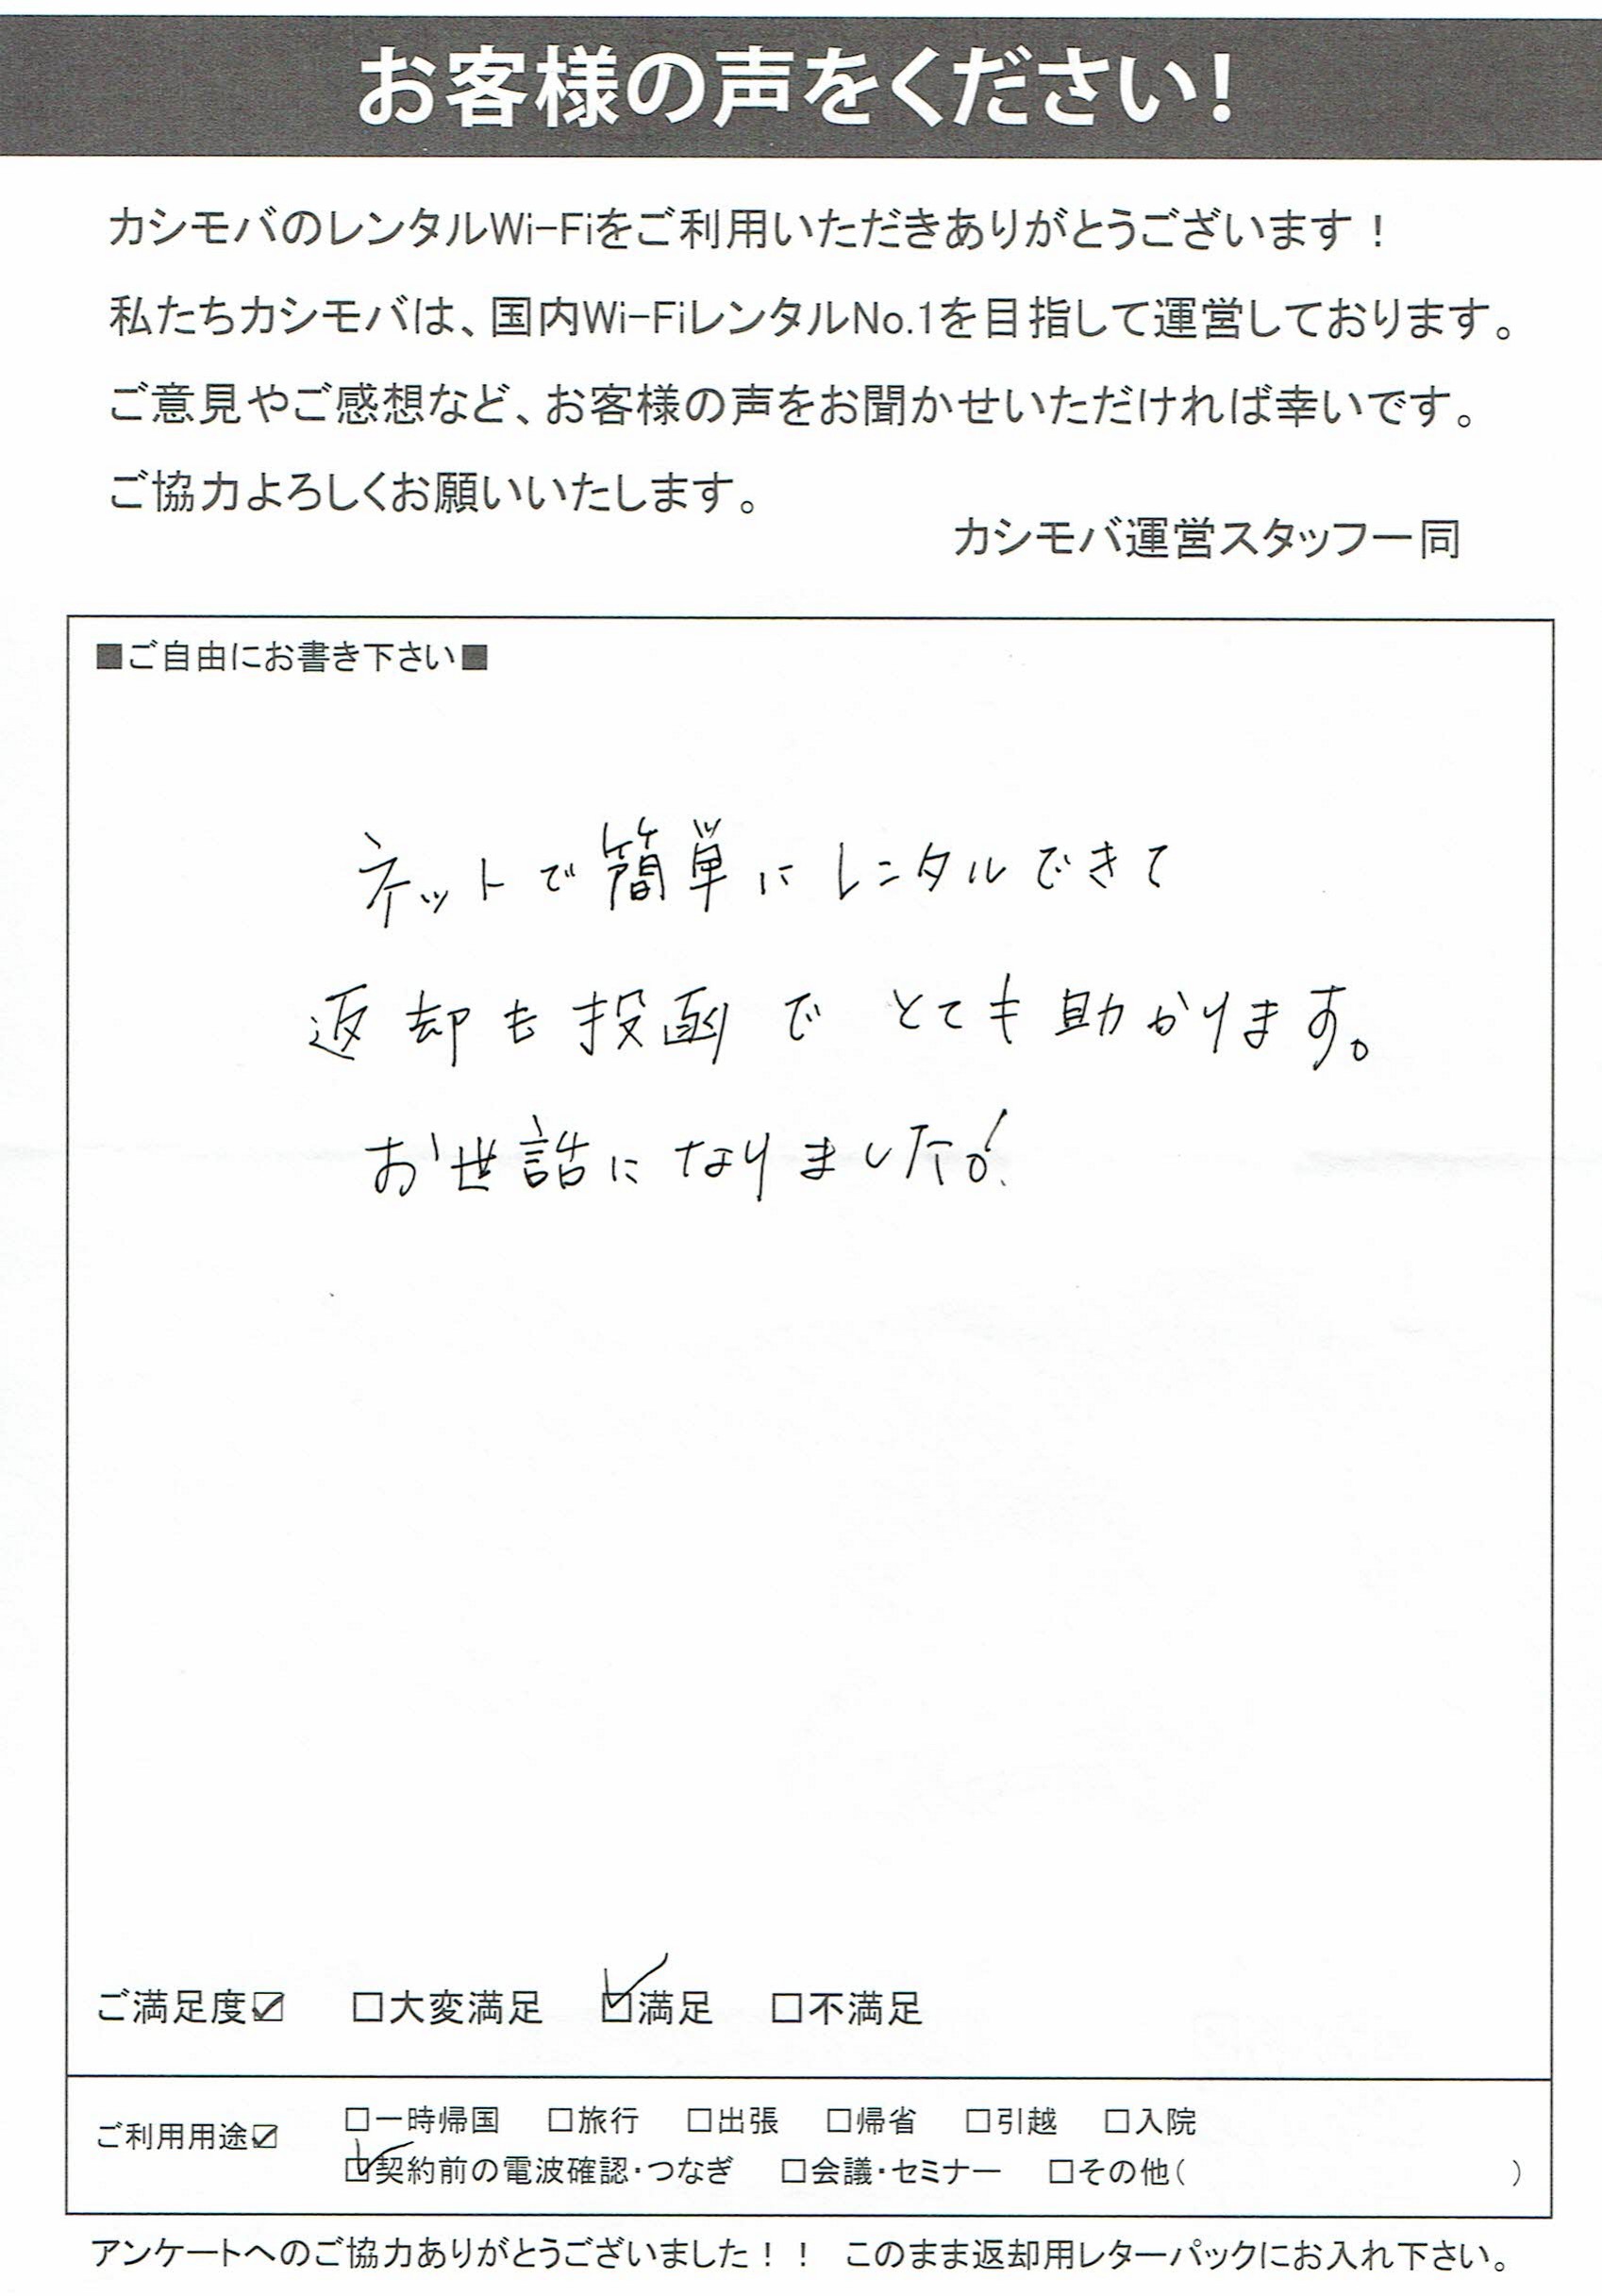 お客様の声をください!
カシモバのレンタルWi-Fiをご利用いただきありがとうございます！
私たちカシモバは、国内Wi-FiレンタルNo.1を目指して運営しております。
ご意見やご感想など、お客様の声をお聞かせいただければ幸いです。
ご協力よろしくお願いいたします。
カシモバ運営スタッフ一同
■ご自由にお書き下さい■
ネットで簡単にレンタルできて
返却も投函でとても助かります。
お世話になりました。!
ご満足度☑ □大変満足 ☑満足 □不満足
ご利用用途☑ □一時帰国 □旅行 □出張 □帰省 □引越 □入院
☑契約前の電波確認・つなぎ □会議・セミナー □その他( )
アンケートへのご協力ありがとうございました！！ このまま返却用レターパックにお入れ下さい。